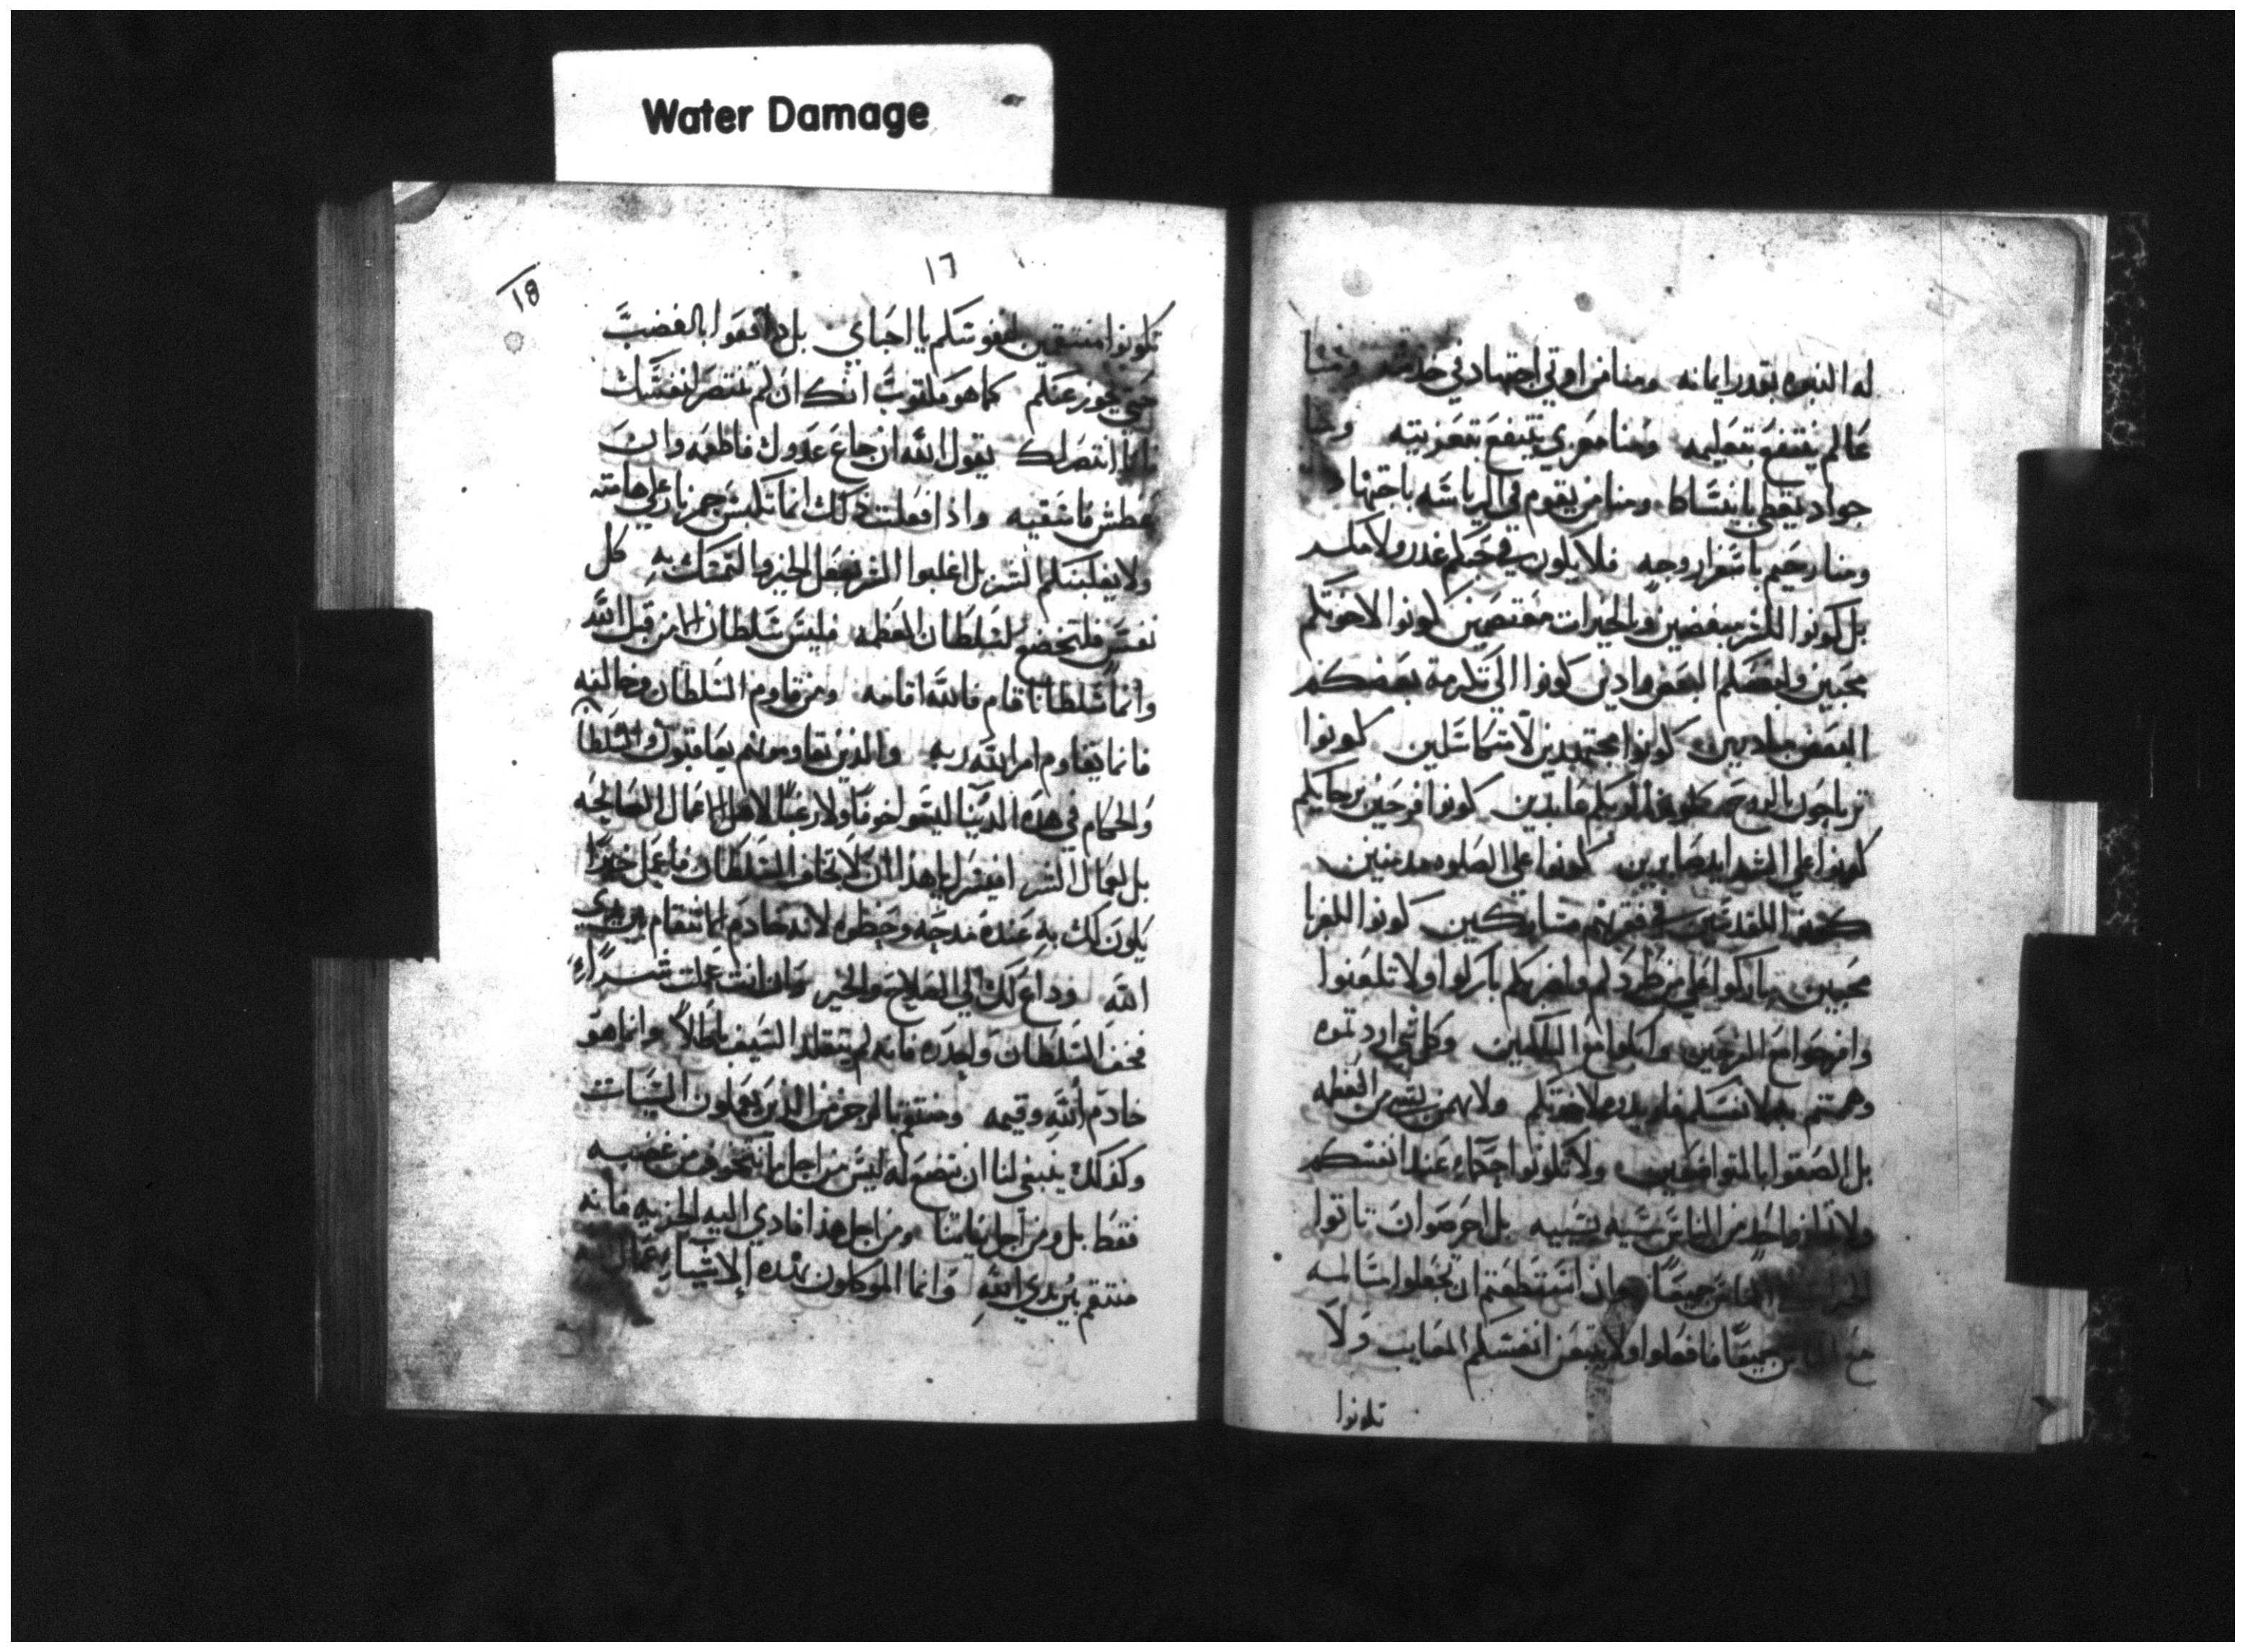 Water Damage
له النبوه بقدر ايمانه ومنا من اوتي اجتهاد في خدمته ومنا
عالم ينتفع بتعليمه ومنا معزي ينتفع بتعزيته ومنا
جواد يعطي بانبساط ومنا من يقوم في الرياسه باجتهاد
ومنا رحيم باسفرار وجهه فلا يكون في حبكم غدر ولا مكر
بل كونوا للشر مبغضين وبالخيرات معتصمين كونوا لاخوتكم
محبين ولبعضكم البعض وادين كونوا الي تكرمة بعضكم
البعض مبادرين كونوا مجتهدين لا متكاسلين كونوا
بالروح لربكم عابدين كونوا فرحين برجايكم
كونوا علي الشدايد صابرين كونوا علي الصلوه مدمنين
كونوا للقديسين في فقرهم مشاركين كونوا للغربا
محبين باركوا علي من طردكم باركوا ولا تلعنوا
وافرحوا مع الفرحين وابكوا مع الباكين وكل شي اردتموه
وهمتم به لانفسكم ولا تهموا بشي من العظمه
بل الصقوا بالمتواضعين ولا تكونوا حكماء عند انفسكم
ولا تكافوا احد من الناس سيه بسيه بل احرصوا ان تاتوا
الناس جميعًا وان استطعتم ان تجعلوا مسالمه
جميعًا فافعلوا ولا انفسكم المعايب ولا
تكونوا
18
١٦
تكونوا منتقمين لنفوسكم يا احباي بل دافعوا بالغضب
حتي يجوز عنكم كما هو مكتوب انك ان لم تنتصر لنفسك
فانا انتصر لك يقول الله ان جاع عدوك فاطعمه وان
عطش فاسقيه واذا فعلت ذلك انما تكبس جمر نار علي هامته
ولا يغلبنكم الشر بل اغلبوا الشر بفعل الخير والتمسك به كل
نفس فلتخضع لسلطان العظمه فليس سلطان الا من قبل الله
وانما سلطانا قام فالله اقامه ومن قاوم السلطان وخالفه
فانما يقاوم امر الله ربه والذين يقاومونهم يعاقبون والسلطا
والحكام في هذه الدنيا ليسوا خوفًا ولا رعبًا لاهل الاعمال الصالحه
بل لعمال الشر افيسرك يا هذا ان لا تخاف السلطان فاعمل خيرًا
يكون لك به عنده مدحه وحظوه لانه خادم
الله وداع لك الي الصلاح والخير وان انت عملت شرًا
فخف السلطان واحذره فانه لم يتقلد السيف باطلاً وانما هو
خادم الله وقيمه ومنتقم بالرجز من الذين يعملون السيات
وكذلك ينبغي لنا ان نخضع له ليس من اجل ما نتخوف من غضبه
فقط بل ومن اجل نياتنا ومن اجل هذا فادي اليه الجزيه فانه
منتقم بين يدي الله وانما الموكلون بهذه الاشياء عمال الله